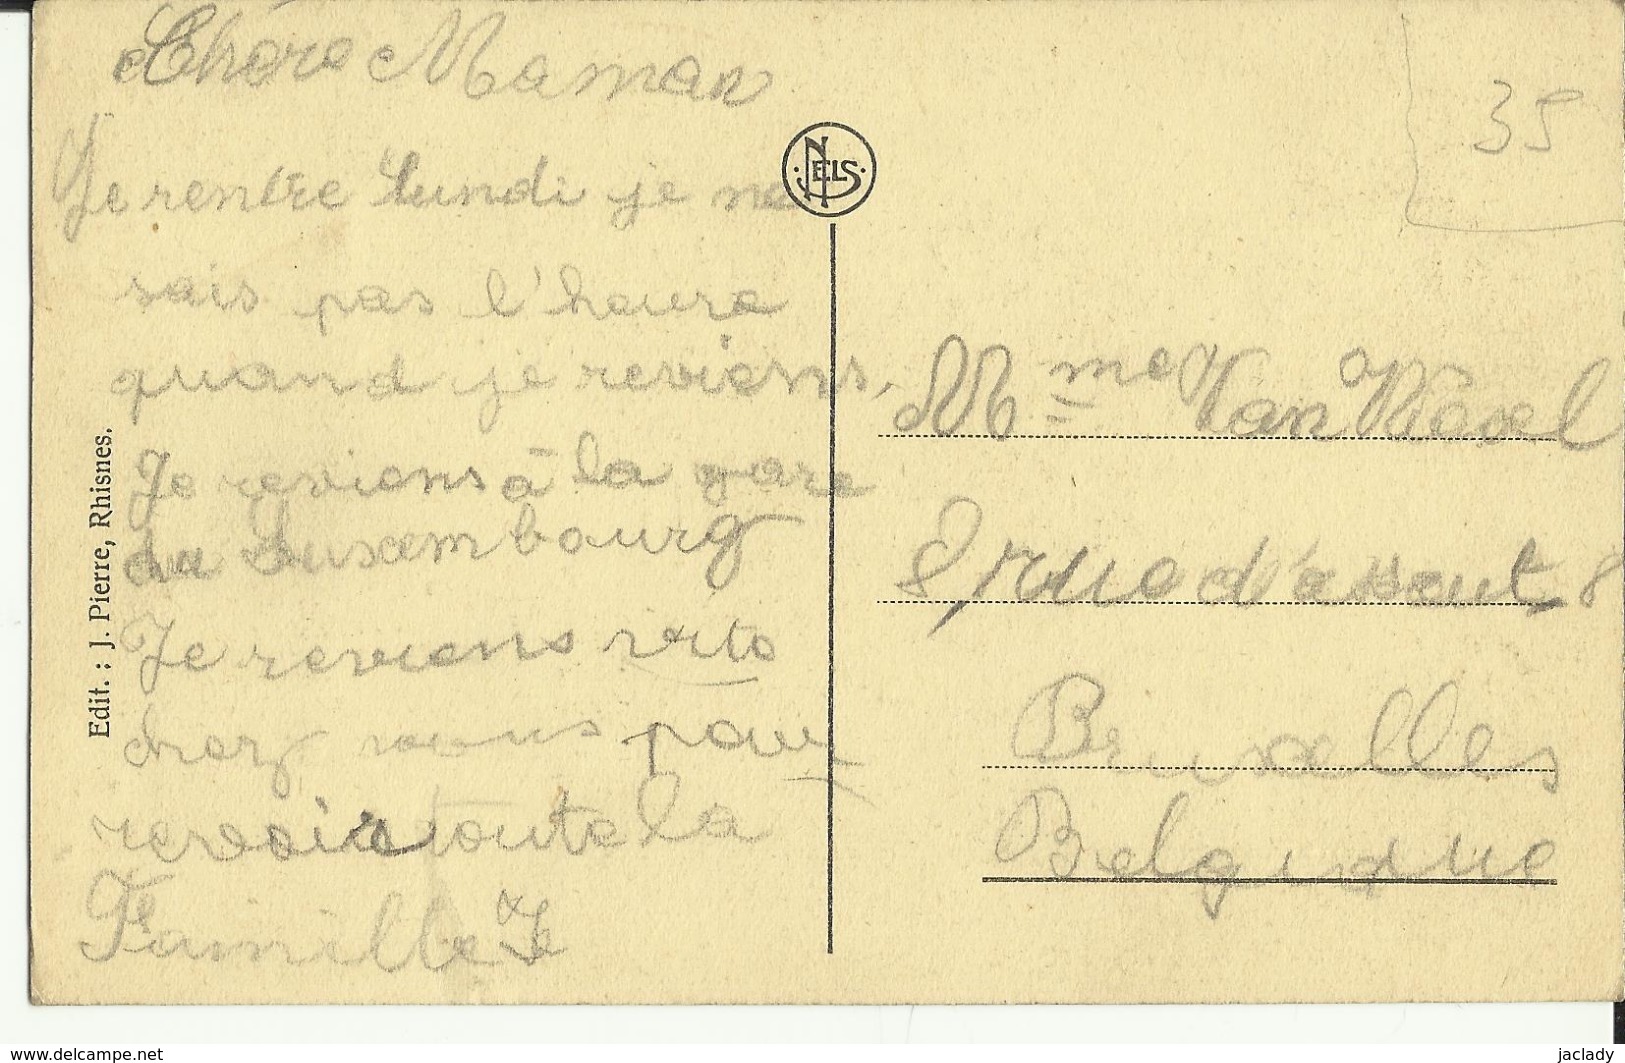 Chère Maman
Je rentre Lundi je ne
sais pas l'heure
quand je reviens,
Je reviens à la gare
du Luxembourg
Je reviens vite
chez vous pour
revoir toute la
Famille Je
Edit. : J. Pierre, Rhisnes.
NELS
35
Mme Van
8, rue d'assaut, 8
Bruxelles
Belgique
www.delcampe.net
jaclady